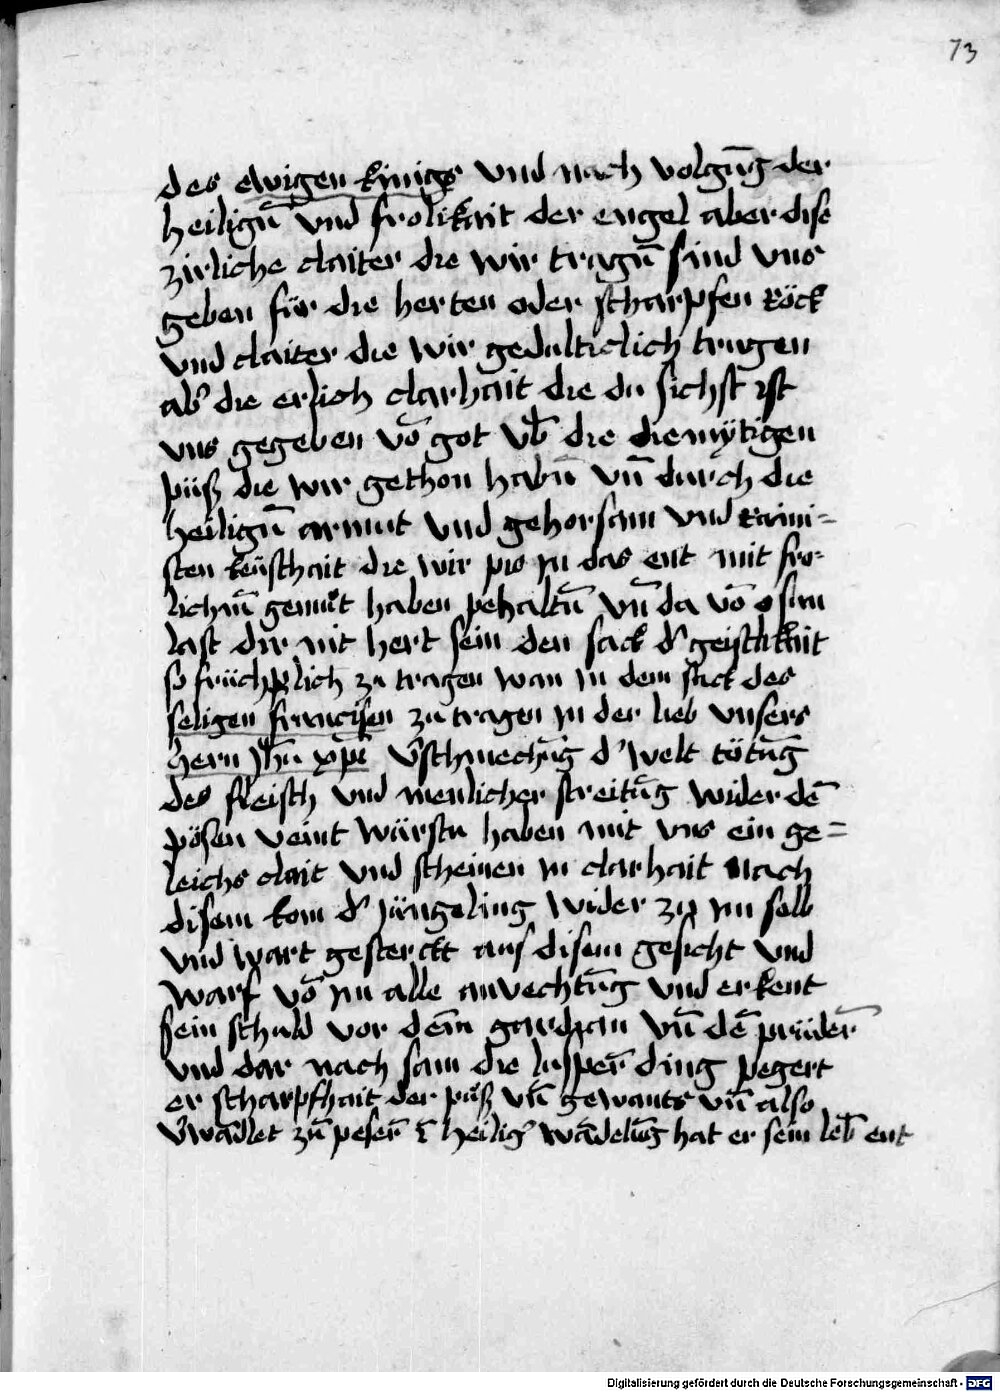 73
des ewigen kẏnigs vnd nach volgūg der
heiligē vnd frolikait der engel aber dise
zirliche claiter die wir tragē sind vns
geben für die herten oder scharpfen Röck
vnd claiter die wir gedulticlich trugen
ab' die erlich clarhait die du sichst ist
vns gegeben vō got vb̄ die diemÿtigen
püß die wir gethon habn̄ vn̄ durch die
heiligē armut vnd gehorsam vnd Raini=
sten keüschait die wir pis jn das ent mit fro=
lichm̄ gemüt haben pehaltn̄ vn̄ da vō o sun
last dir nit hert sein den sack d' geistlikait
so früchperlich zu tragen wan jn dem sack des
seligen francisen zu tragen jn der lieb vnsers
hern Jhū xp̄i v'schmechūg d' welt tötūg
des fleisch vnd menlicher streitūg wider dē
pösen veint würstu haben mit vns ein ge=
leichs clait vnd scheinen jn clarhait Nach
disem kom d' jüngeling wider zu jm selb
vnd wart gesterckt aus disem gesicht vnd
warf vō jm alle anvechtūg vnd erkent
sein schuld vor dem gardian vn̄ dē prüder̄
vnd dar nach sam die lusper̄ ding pegert
er scharpfhait der püß vn̄ gewants vn̄ also
v'wādlet zū peser̄ ī heilig' wādelūg hat er sein leb̄ ent
Digitalisierung gefördert durch die Deutsche Forschungsgemeinschaft - DFG